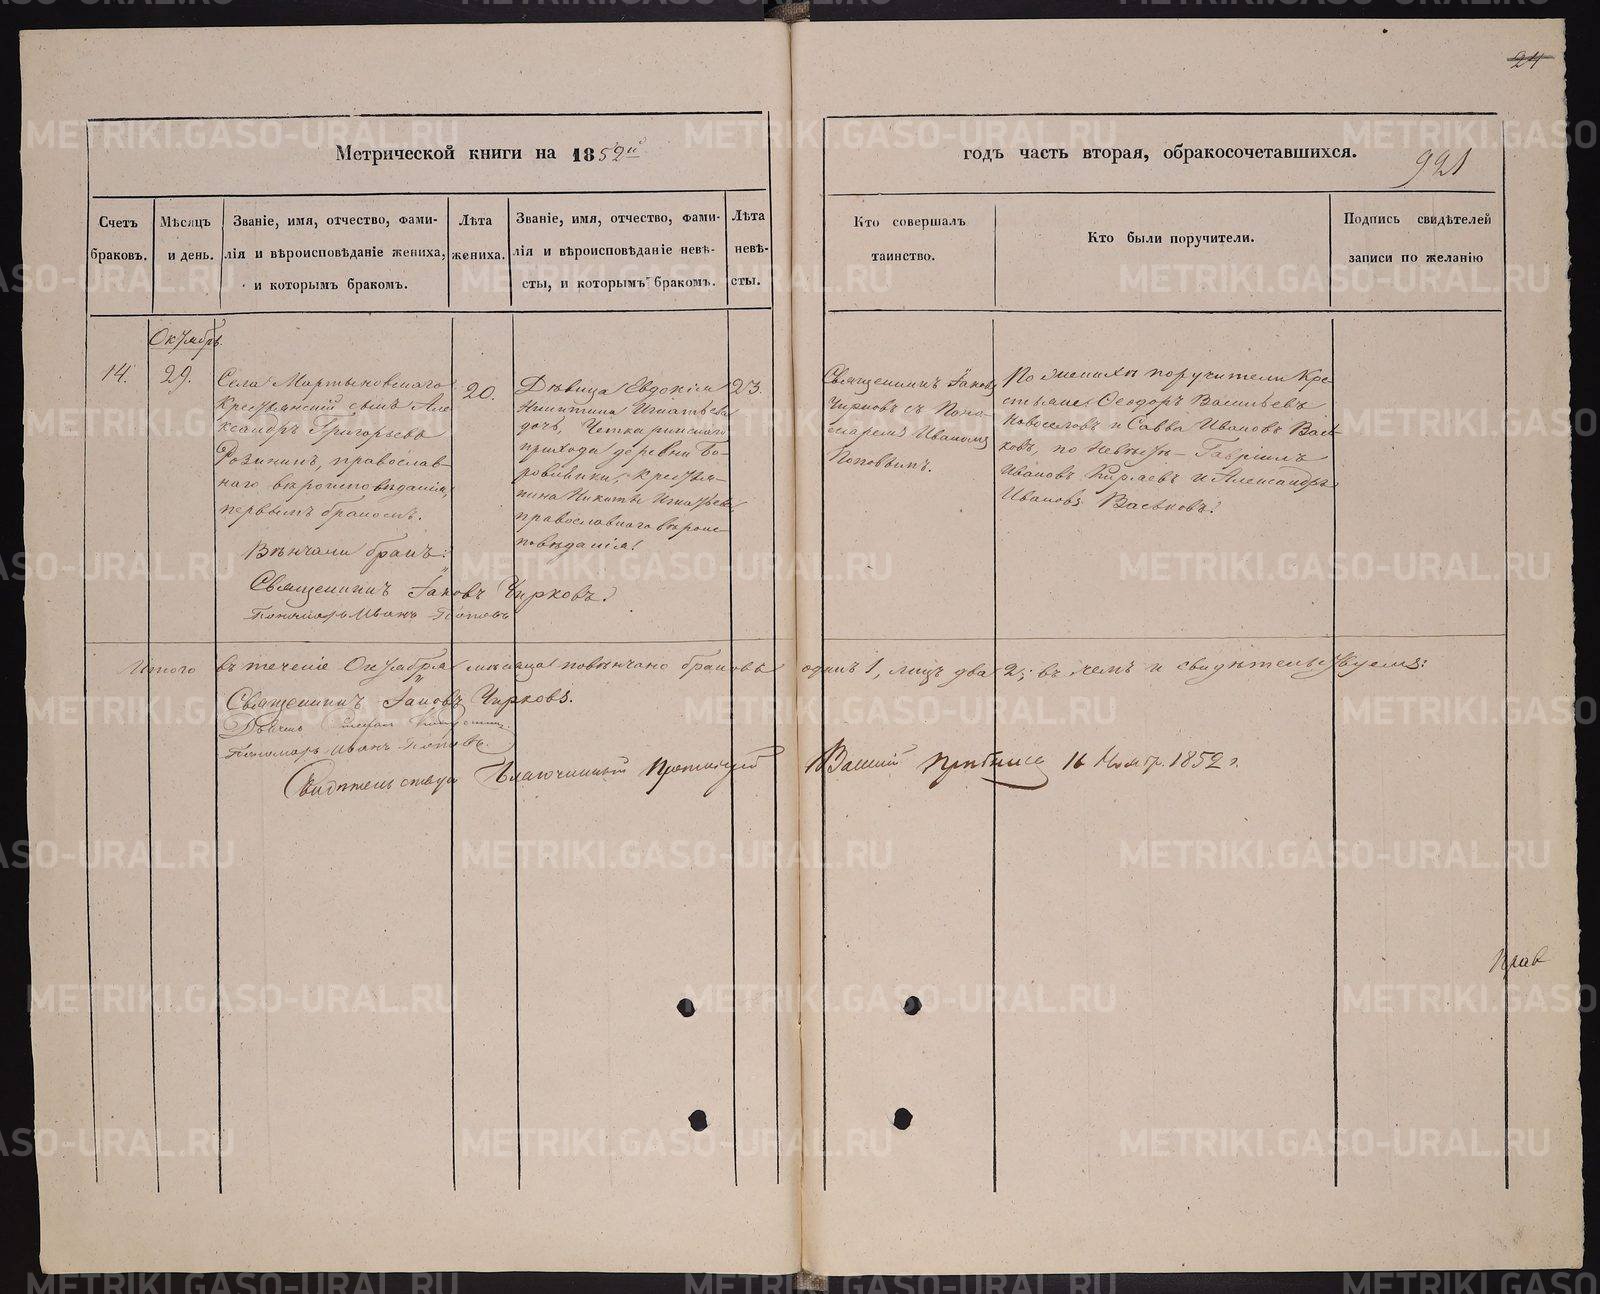 24
Метрической книги на 1852й
годъ часть вторая, обракосочетавшихся.
921
Счетъ браковъ.
Мѣсяцъ и день.
Званіе, имя, отчество, фами-
лія и вѣроисповѣданіе жениха,
и которымъ бракомъ.
Лѣта
жениха.
Званіе, имя, отчество, фами-
лія и вѣроисповѣданіе невѣ-
сты, и которымъ бракомъ.
Лѣта
невѣ-
сты.
Кто совершалъ
таинство.
Кто были поручители.
Подпись свидѣтелей
записи по желанію
Октябрь.
14.
29.
Села Мартыновскаго
крестьянскій сынъ Але
ксандръ Григорьевъ
православ-
наго вѣроисповѣданія,
первымъ бракомъ.
20.
Дѣвица Евдокія
Никитина Игнатьева
дочь,
прихода деревни Бо-
ровлянки, крестья-
нина Никиты Игнатьева
православнаго вѣроис-
повѣданія.
23.
Священникъ Іаковъ
Чирковъ съ Поно-
маремъ Иваномъ
Поповымъ.
По женихѣ поручители Кре-
стьяне Ѳеодоръ Васильевъ
Новоселовъ и Савва Ивановъ Вась-
ковъ, по невѣстѣ – Гавріилъ
Ивановъ и Александръ
Ивановъ Васьковъ.
Вѣнчали бракъ:
Священникъ Іаковъ Чирковъ.
Пономарь Иванъ Поповъ
Итого въ теченіе Октября мѣсяца повѣнчано браковъ одинъ 1, лицъ два 2; въ чемъ и свидѣтельствуемъ:
Священникъ Іаковъ Чирковъ.
Дьячекъ
Пономарь Иванъ Поповъ.
Свидѣтельствую Благочинный Протоіерей 16 Ноябр. 1852 г.